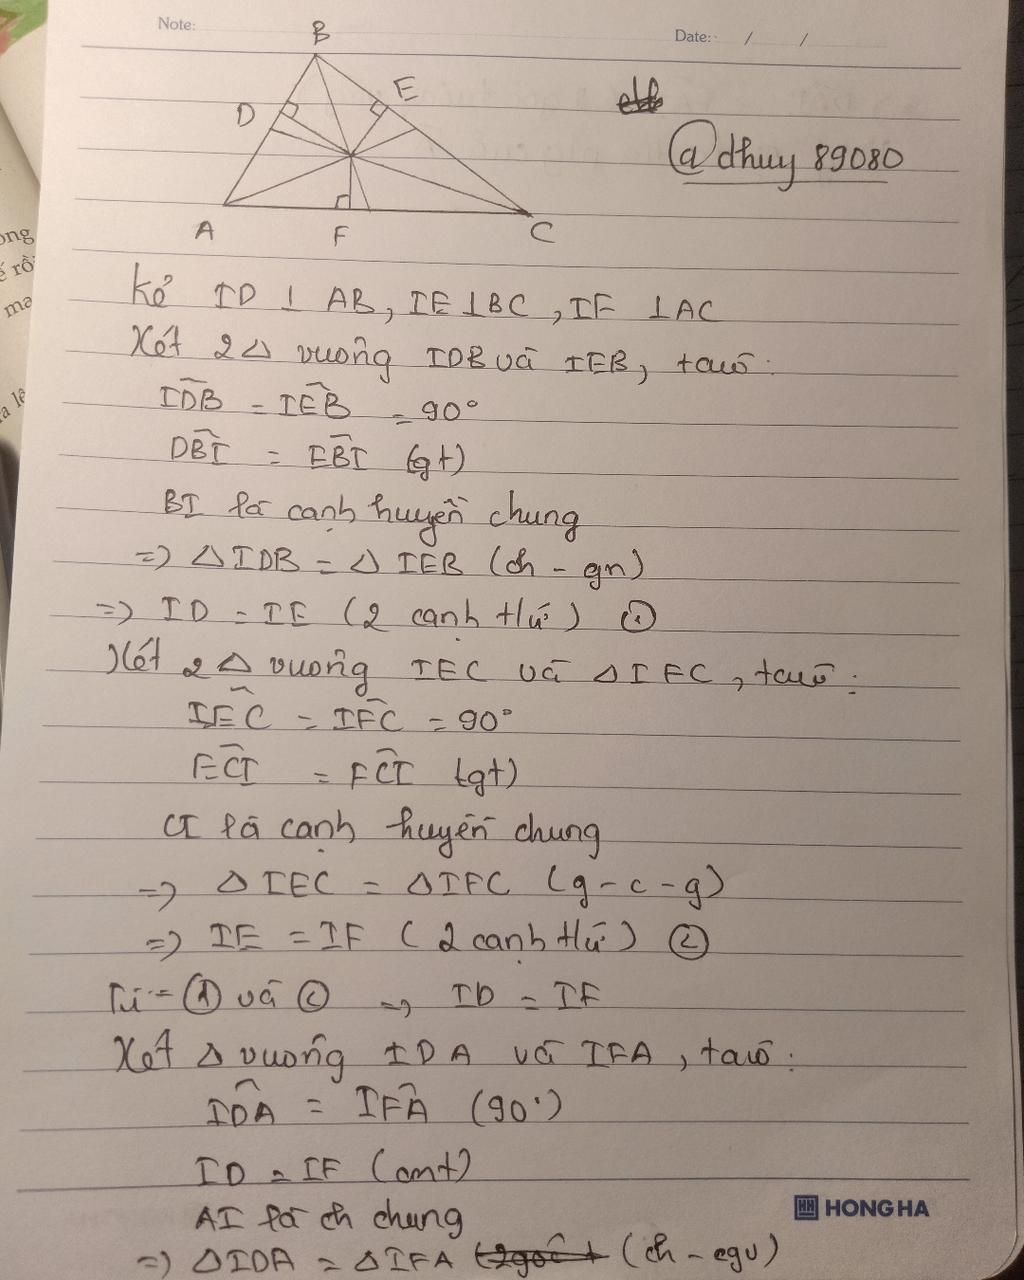 Note:
Date: / /
B
D
E
A
F
C
@dhuy 89080
ong
ế rồi
ma
a lê
Kẻ ID ⊥ AB, IE ⊥ BC, IF ⊥ AC
Xét 2 Δ vuông IDB và IEB, ta có:
IDB = IEB = 90°
DBI = EBI (gt)
BI là cạnh huyền chung
=> Δ IDB = Δ IEB (ch - gn)
=> ID = IE (2 cạnh t/ứ) ①
Xét 2 Δ vuông IEC và Δ IFC, ta có:
IEC = IFC = 90°
ECI = FCI (gt)
CI là cạnh huyền chung
=> Δ IEC = Δ IFC (g - c - g)
=> IE = IF (2 cạnh t/ứ) ②
Từ ① và ② => ID = IF
Xét Δ vuông IDA và IFA, ta có:
IDA = IFA (90°)
ID = IF (cmt)
AI là ch chung
=> Δ IDA = Δ IFA (ch - cgv)
HONG HA